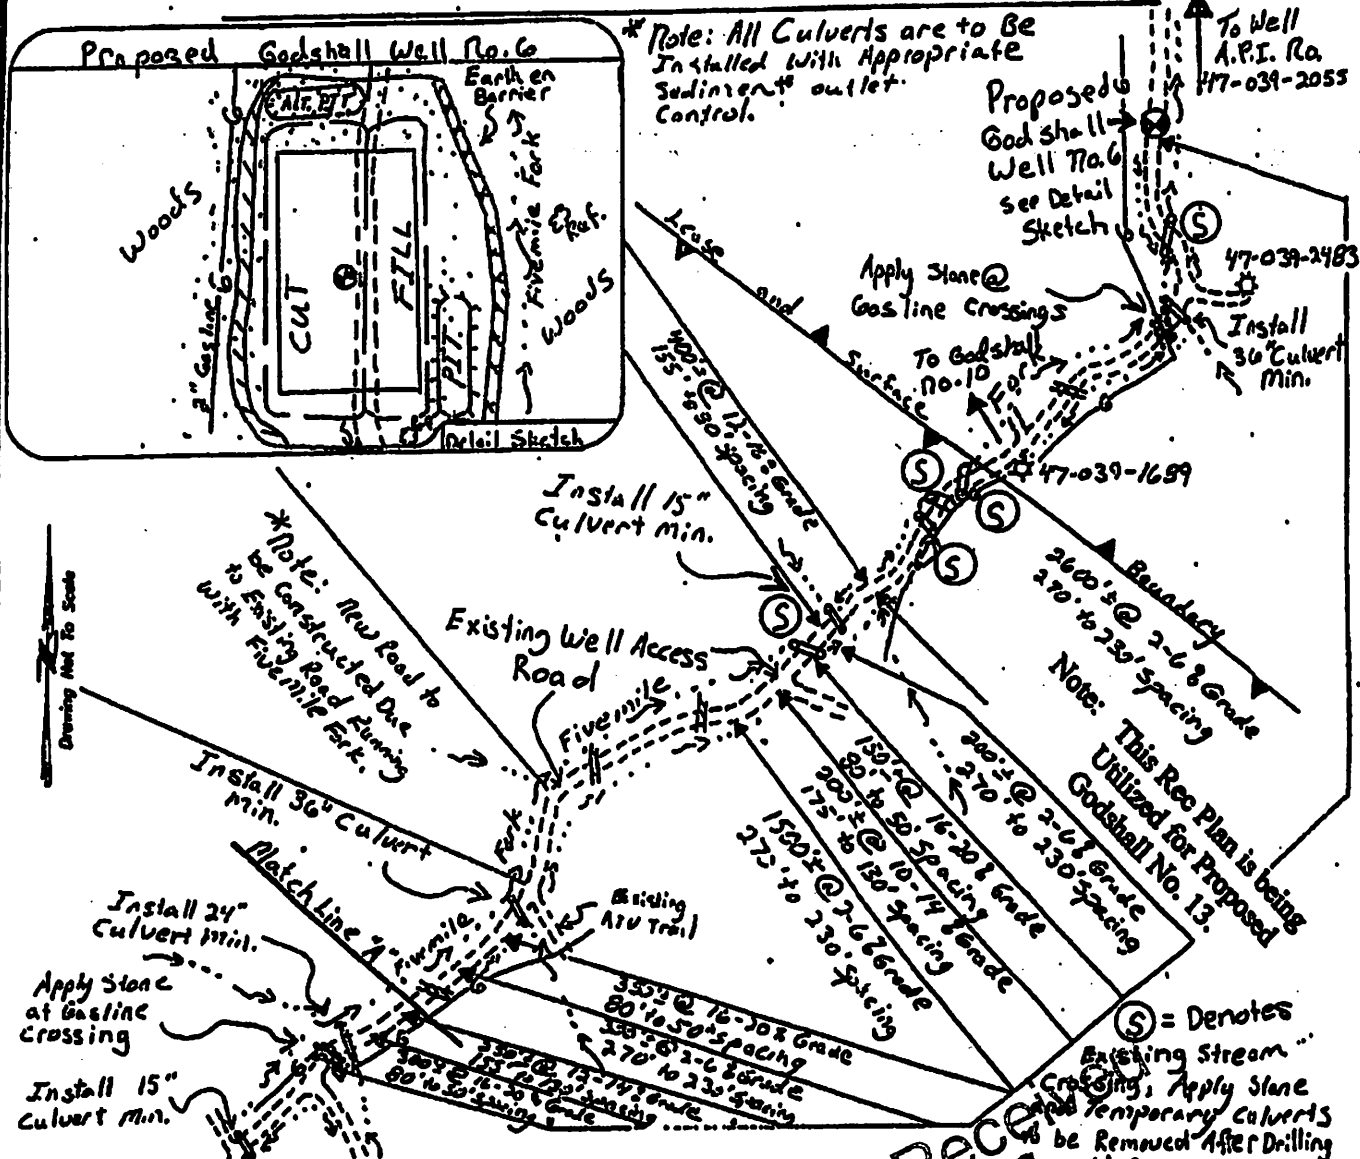 Proposed Godshall Well No. 6
Alt. PIT
Earthen
Barrier
Fivemile Fork
Woods
2" Gasline
CUT
FILL
PIT
Woods
Detail Sketch
* Note: All Culverts are to Be
Installed With Appropriate
Sediment outlet
Control.
To Well
A.P.I. No.
47-039-2055
Proposed
Godshall
Well No. 6
see Detail
Sketch
S
47-039-2483
Install
36" Culvert
Min.
Apply Stone @
Gasline Crossings
To Godshall
No. 10
Fork
Lease and Surface Boundary
S
47-039-1689
S
S
400'± @ 12-16% Grade
Spacing
Install 15"
Culvert Min.
S
2600'± @ 2-6% Grade
270' to 230' Spacing
Note: This Rec Plan is being
Utilized for Proposed
Godshall No. 13.
* Note: New Road to
be Constructed Due
to Existing Road Running
With Fivemile Fork.
Drawing Not To Scale
Existing Well Access
Road
Fivemile
Fork
Install 36" Culvert
Min.
Match Line "A"
Fivemile
Existing
ATV Trail
Install 24"
Culvert Min.
Apply Stone
at Gasline
Crossing
Install 15"
Culvert Min.
200'± @ 2-6% Grade
270' to 230' Spacing
150'± @ 16-20% Grade
80' to 50' Spacing
200'± @ 10-14% Grade
175' to 130' Spacing
1500'± @ 2-6% Grade
270' to 230' Spacing
350'± @ 16-20% Grade
80' to 50' Spacing
@ 2-6% Grade
270' to 230' Spacing
350'± @ 12-14% Grade
Spacing
300'± @ 16- Grade
80' to 50' Spacing
S = Denotes
Existing Stream
Crossing, Apply Stone
and Temporary Culverts
to be Removed After Drilling
Received